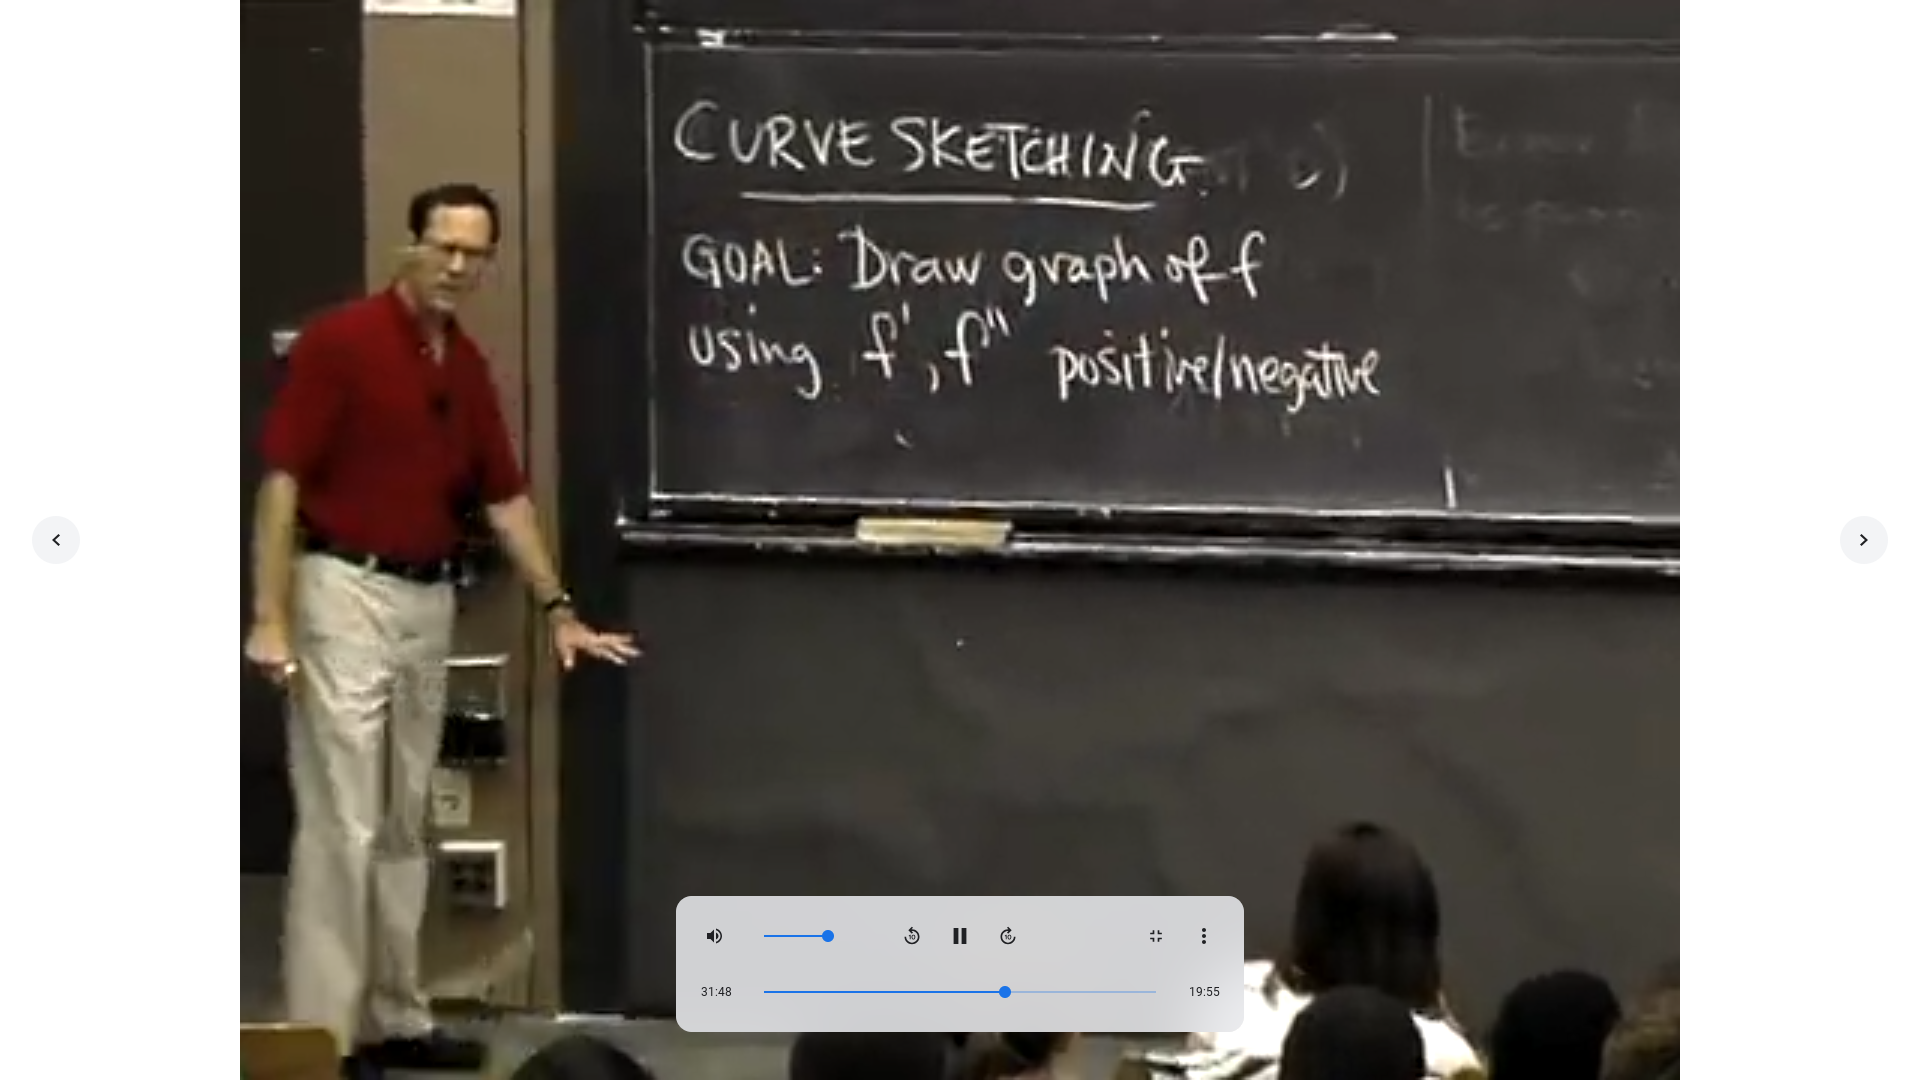 CURVE SKETCHING
GOAL: Draw graph of f
using f', f" positive/negative
10
10
31:48
19:55